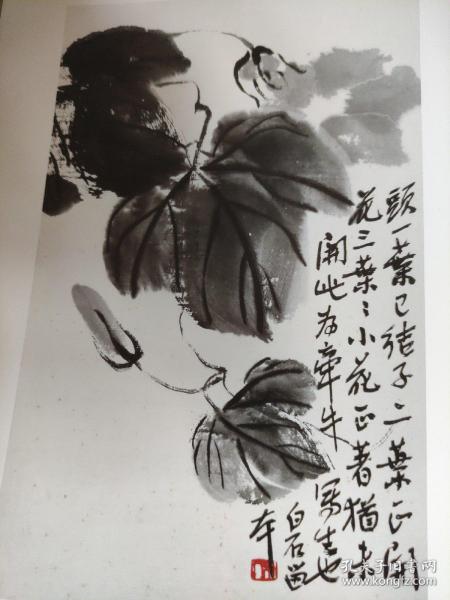 頭一葉已結子二葉正開
花三葉〻小花正著猶未
開此為牽牛寫生也
白石草
本
孔夫子旧书网
www.kongfz.com